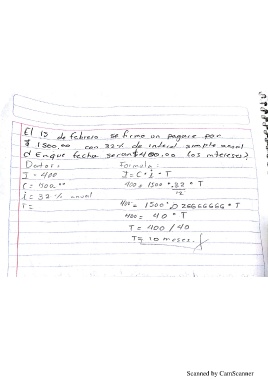 El 15 de febrero se firma un pagare por
$ 1500.00 con 32% de interes simple anual
¿ En que fecha seran $400.00 los intereses?
Datos: Formula:
I = 400 I = C * i * T
C = 1500.00 400 = 1500 * .32/12 * T
i = 32% anual
T = 400 = 1500 * 0.02666666 * T
400 = 40 * T
T = 400 / 40
T = 10 meses.
Scanned by CamScanner